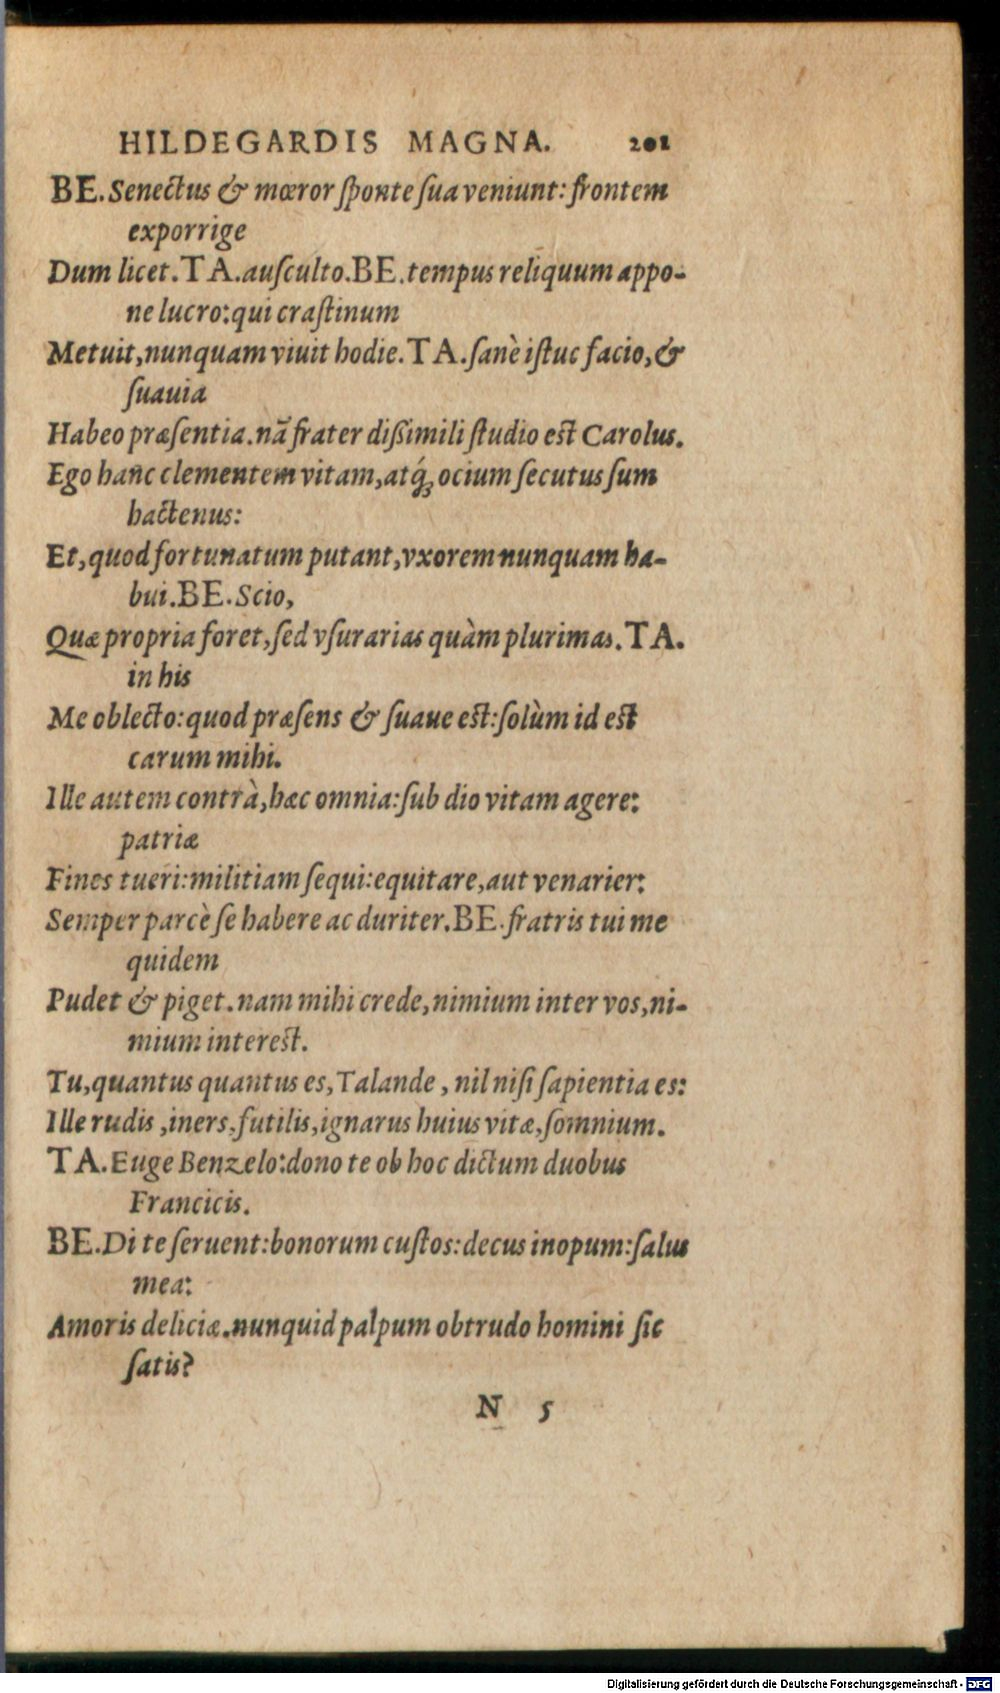 HILDEGARDIS MAGNA. 201
BE. Senectus & mœror ſponte ſua veniunt: frontem
exporrige
Dum licet. TA. auſculto. BE. tempus reliquum appo-
ne lucro: qui craſtinum
Metuit, nunquam viuit hodie. TA. ſanè iſtuc facio, &
ſuauia
Habeo præſentia. nã frater dißimili ſtudio est Carolus.
Ego hanc clementem vitam, atq́ꝫ ocium ſecutus ſum
hactenus:
Et, quod fortunatum putant, vxorem nunquam ha-
bui. BE. Scio,
Quæ propria foret, ſed vſurarias quàm plurimas. TA.
in his
Me oblecto: quod præſens & ſuaue est: ſolùm id est
carum mihi.
Ille autem contrà, hæc omnia: ſub dio vitam agere:
patriæ
Fines tueri: militiam ſequi: equitare, aut venarier:
Semper parcè ſe habere ac duriter. BE. fratris tui me
quidem
Pudet & piget. nam mihi crede, nimium inter vos, ni-
mium interest.
Tu, quantus quantus es, Talande, nil niſi ſapientia es:
Ille rudis, iners, futilis, ignarus huius vitæ, ſomnium.
TA. Euge Benzelo: dono te ob hoc dictum duobus
Francicis.
BE. Di te ſeruent: bonorum cuſtos: decus inopum: ſalus
mea:
Amoris deliciæ. nunquid palpum obtrudo homini ſic
ſatis?
N 5
Digitalisierung gefördert durch die Deutsche Forschungsgemeinschaft - DFG